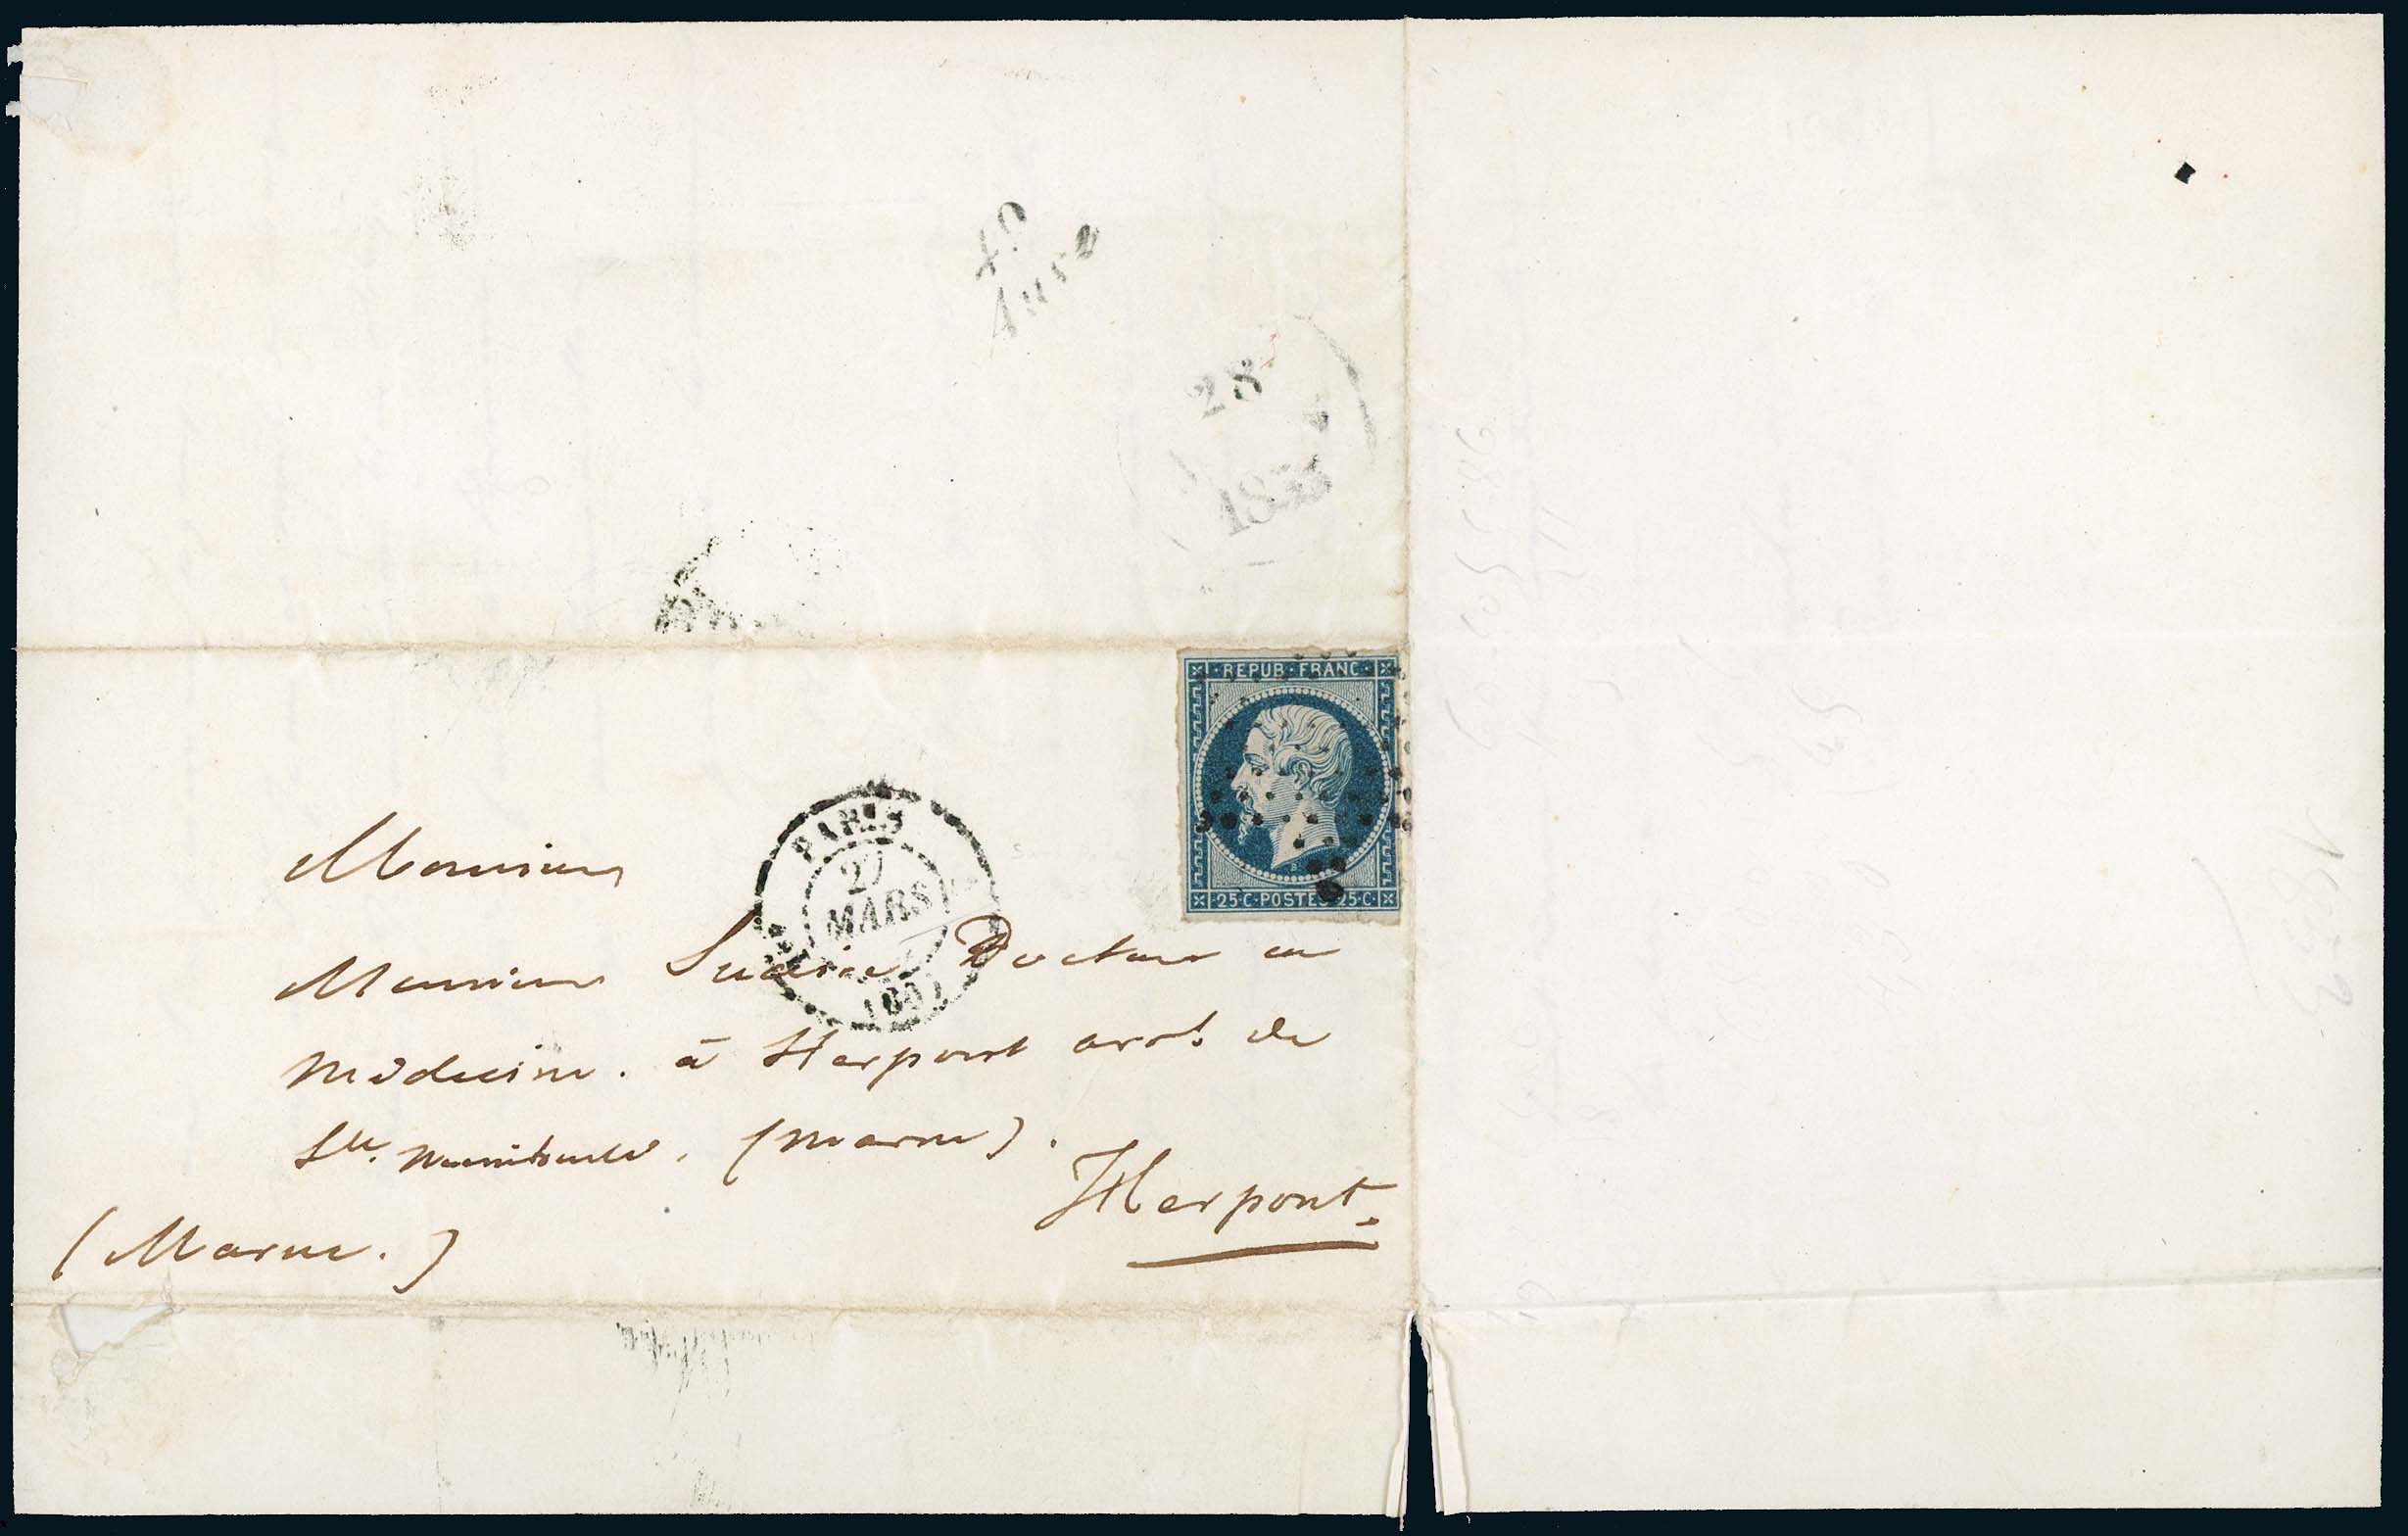 28
1853
REPUB·FRANC·
25·C·POSTES·25·C·
PARIS
27
MARS
Monsieur
Monsieur Docteur en
médecine. à Herpont arrt. de
Ste. Menehould. (Marne).
Herpont.
(Marne.)
1853